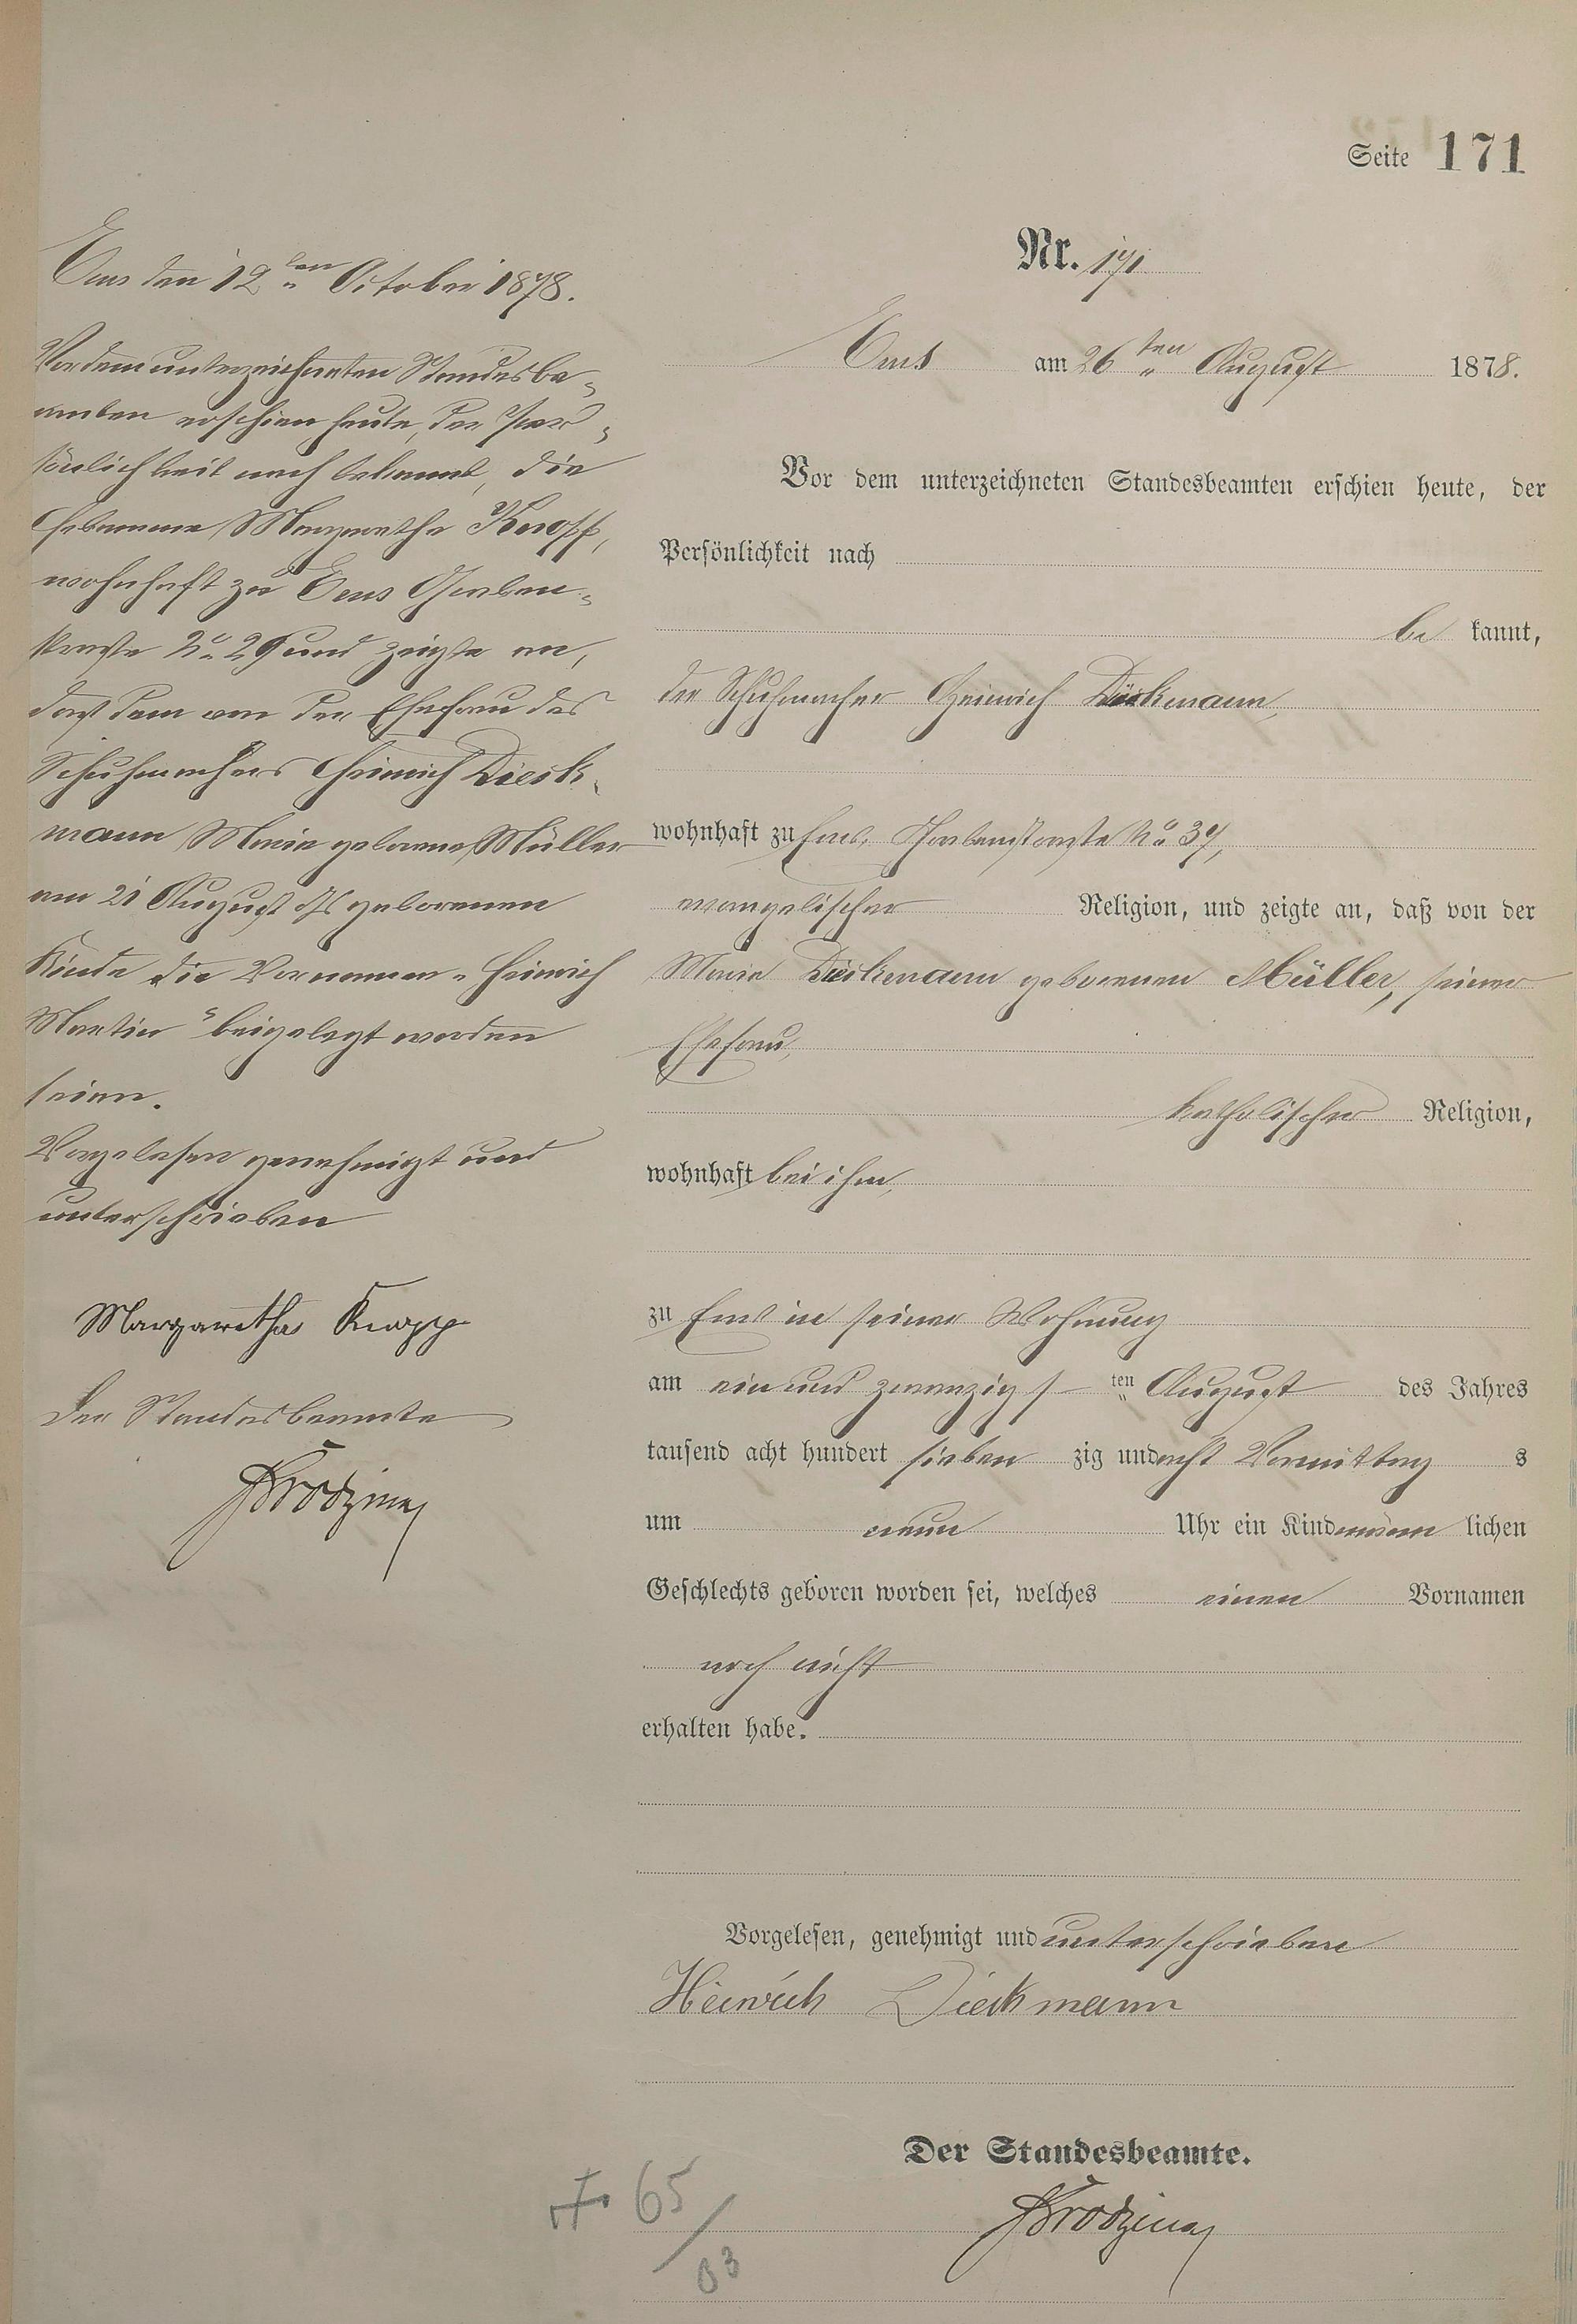 Seite 171
Ems den 12ten October 1878.
Vor dem unterzeichneten Standesbe-
amten erschien heute, der Per-
sönlichkeit nach bekannt, die
Hebamme Margarethe Knopp,
wohnhaft zu Ems Graben-
straße No 29 und zeigte an,
daß dem von der Ehefrau des
Schuhmachers Heinrich Dieck-
mann Marie geborene Müller
am 21 August d Js geborenen
Kinde die Vornamen „Heinrich
Martin“ beigelegt worden
seien.
Vorgelesen genehmigt und
unterschrieben
Margaretha Knopp
Der Standesbeamte
Nr. 171
Ems am 26ten August 1878.
Vor dem unterzeichneten Standesbeamten erschien heute, der
Persönlichkeit nach
be kannt,
der Schuhmacher Heinrich Dieckmann,
wohnhaft zu Ems, Grabenstraße No 37,
evangelischer Religion, und zeigte an, daß von der
Marie Dieckmann geborenen Müller, seiner
Ehefrau,
katholischer Religion,
wohnhaft bei ihm,
zu Ems in seiner Wohnung
am ein und zwanzigsten August des Jahres
tausend acht hundert sieben zig und acht Vormittag s
um neun Uhr ein Kind männ lichen
Geschlechts geboren worden sei, welches einen Vornamen
noch nicht
erhalten habe.
Vorgelesen, genehmigt und unterschrieben
Heinrich Dieckmann
Der Standesbeamte.
65/03